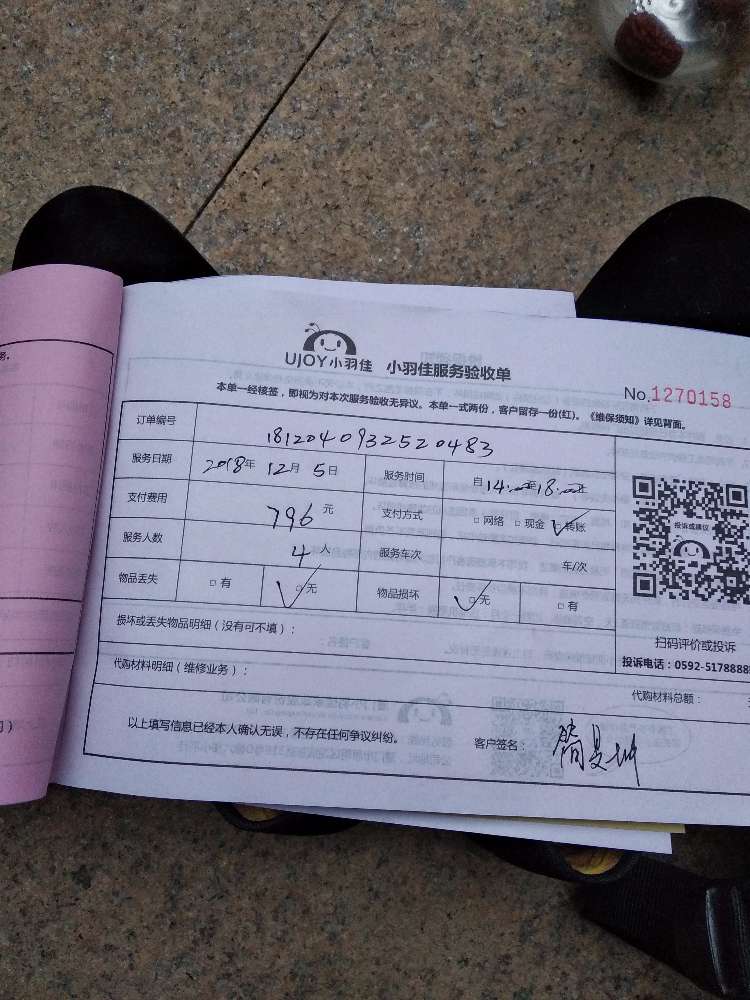 UJOY小羽佳 小羽佳服务验收单
No.1270158
本单一经核签，即视为对本次服务验收无异议。本单一式两份，客户留存一份(红)。《维保须知》详见背面。
订单编号 1812040932520483
服务日期 2018年 12月 5日 服务时间 自14:00至18:00止
支付费用 796元 支付方式 □网络 □现金 □转账
服务人数 4人 服务车次 车/次
物品丢失 □有 □无 物品损坏 □无 □有
投诉或建议
扫码评价或投诉
投诉电话：0592-5178888
损坏或丢失物品明细（没有可不填）：
代购材料明细（维修业务）：
代购材料总额：
以上填写信息已经本人确认无误，不存在任何争议纠纷。 客户签名：